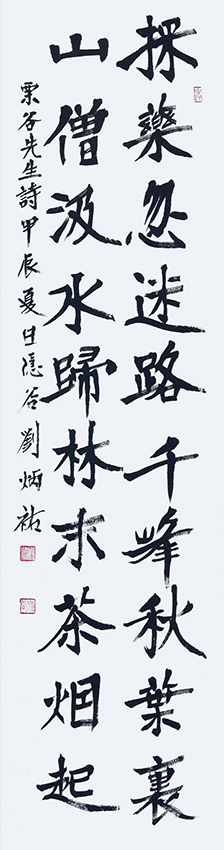 採藥忽迷路千峰秋葉裏
山僧汲水歸林末茶烟起
栗谷先生詩甲辰夏日隱谷劉炳祐